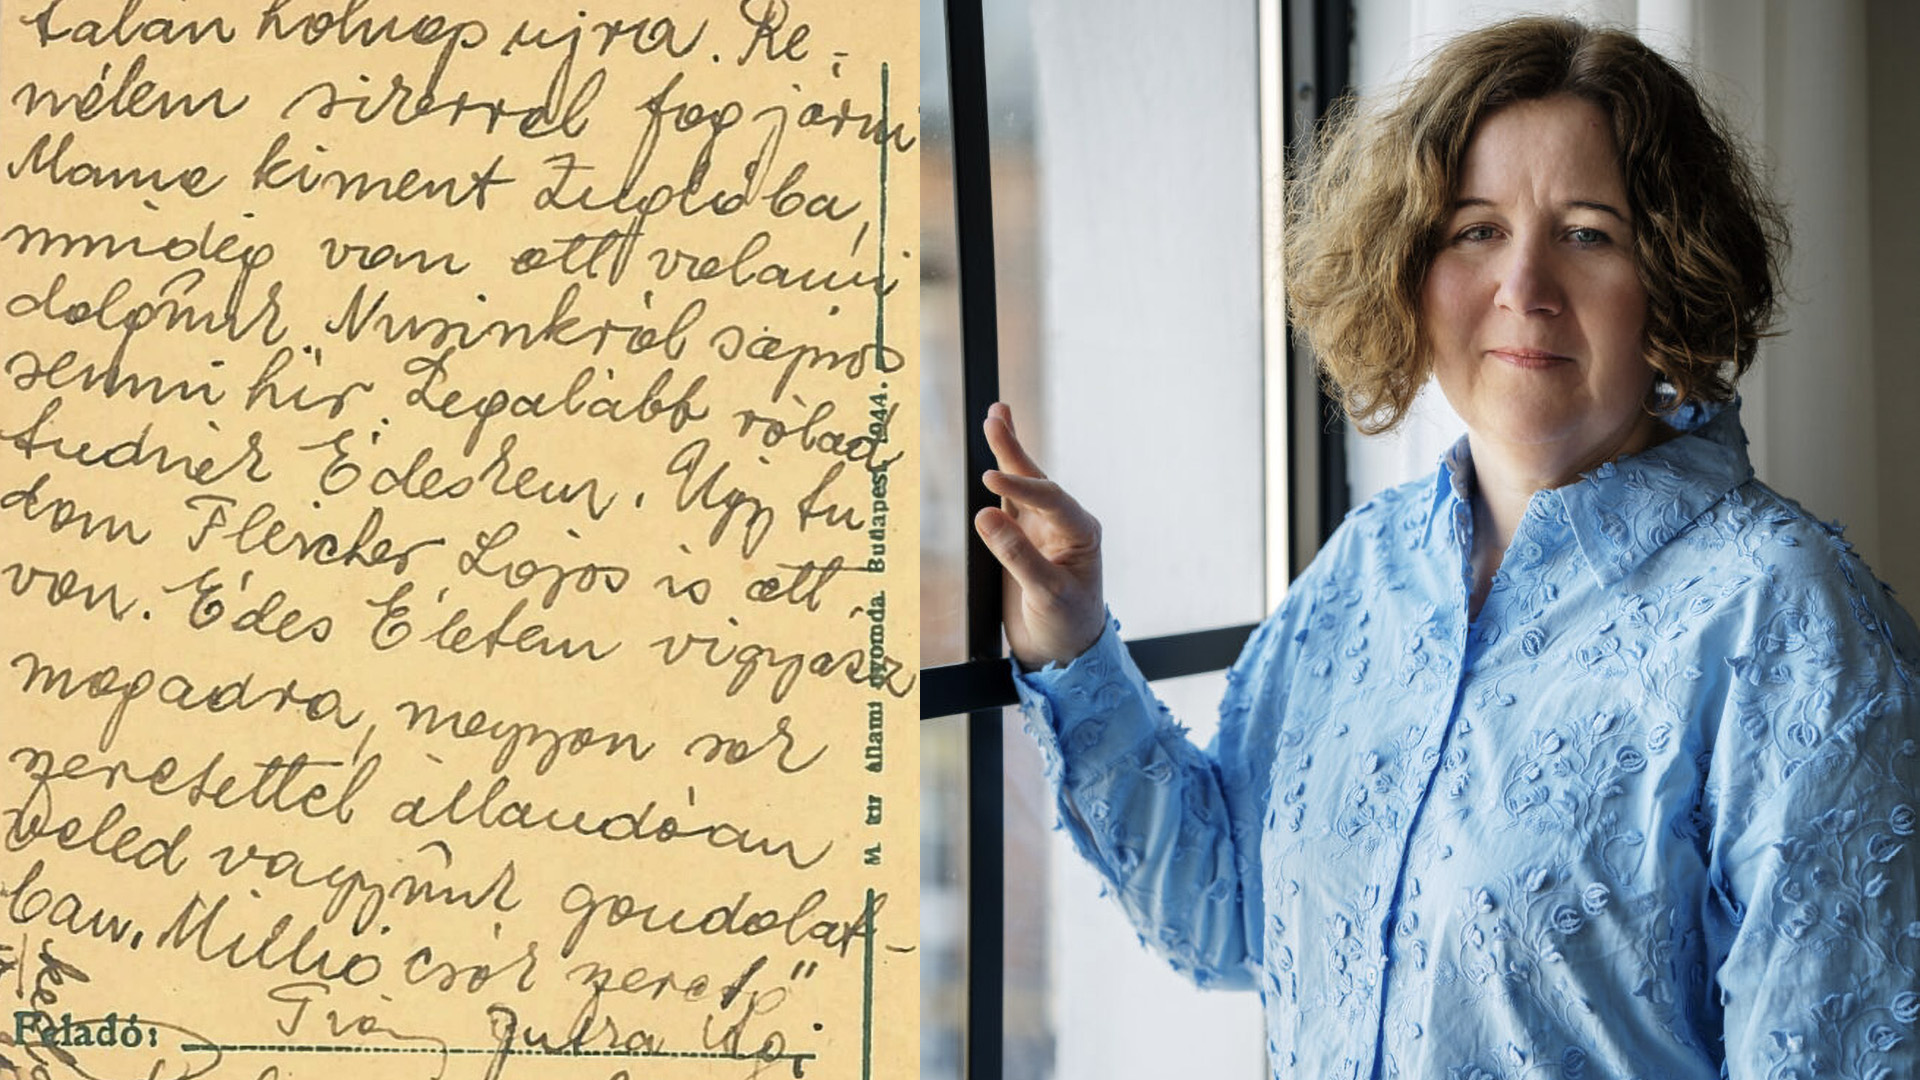 talán holnap ujra. Re-
mélem sikerrel fog járni
Mama kiment Zuglóba,
mindig van ott valami
dolgunk. Nusinkról sajnos
semmi hír. Legalább rólad
tudnék Édeskem. Úgy tu
dom Fleischer Lajos is ott
van. Édes Életem vigyázz
magadra, nagyon sok
szeretettel állandóan
Veled vagyunk gondolat-
ban. Millió csók szerető"
Jutka
Feladó:
M. kir. állami nyomda. Budapest, 1944.